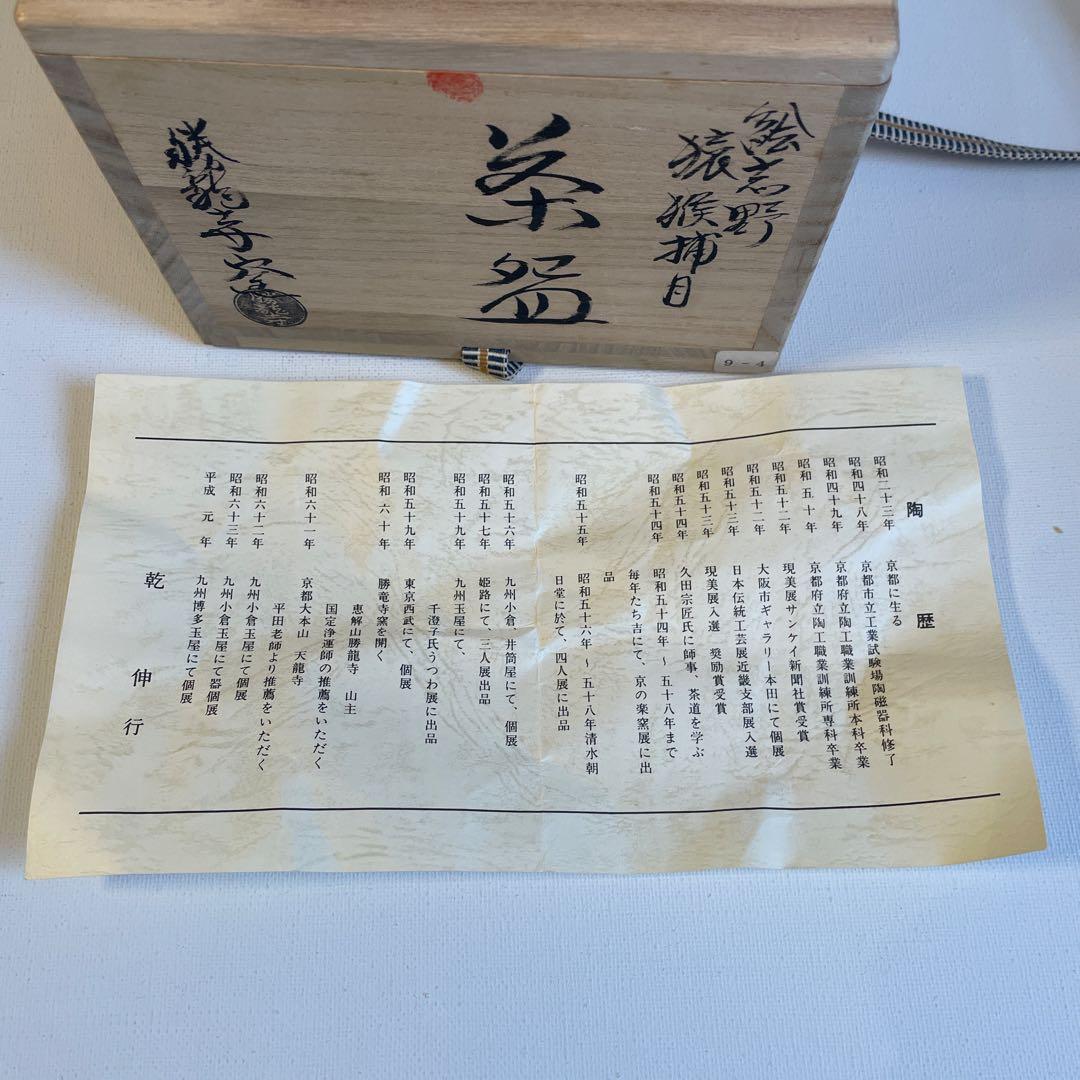 繪志野
猿猴捕月
茶盌
勝龍寺窯
9-4
陶歴
昭和二十三年 京都に生る
昭和四十八年 京都市立工業試験場陶磁器科修了
昭和四十九年 京都府立陶工職業訓練所本科卒業
昭和 五 十年 京都府立陶工職業訓練所専科卒業
昭和五十二年 現美展サンケイ新聞社賞受賞
昭和五十二年 大阪市ギャラリー本田にて個展
昭和五十三年 日本伝統工芸展近畿支部展入選
昭和五十三年 現美展入選 奨励賞受賞
昭和五十四年 久田宗匠氏に師事、茶道を学ぶ
昭和五十四年 昭和五十四年 〜 五十八年まで
毎年たち吉にて、京の楽窯展に出
品
昭和五十五年 昭和五十六年 〜 五十八年清水朝
日堂に於て、四人展に出品
昭和五十六年 九州小倉、井筒屋にて、個展
昭和五十七年 姫路にて、三人展出品
昭和五十九年 九州玉屋にて、
千澄子氏うつわ展に出品
昭和五十九年 東京西武にて、個展
昭和 六 十年 勝竜寺窯を開く
恵解山勝龍寺 山主
国定浄運師の推薦をいただく
昭和六十一年 京都大本山 天龍寺
平田老師より推薦をいただく
昭和六十二年 九州小倉玉屋にて個展
昭和六十三年 九州小倉玉屋にて器個展
平成 元 年 九州博多玉屋にて個展
乾 伸 行